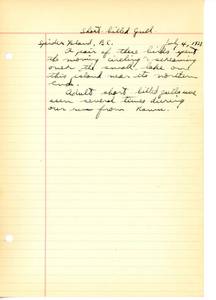 Short billed Gull
Spider Island, B.C. July 4, 19
A pair of these birds spent
the morning circling & screaming
over the small lake on
this island near its northern
end.
Adult short billed gulls were
seen several times during
our run from Namu.